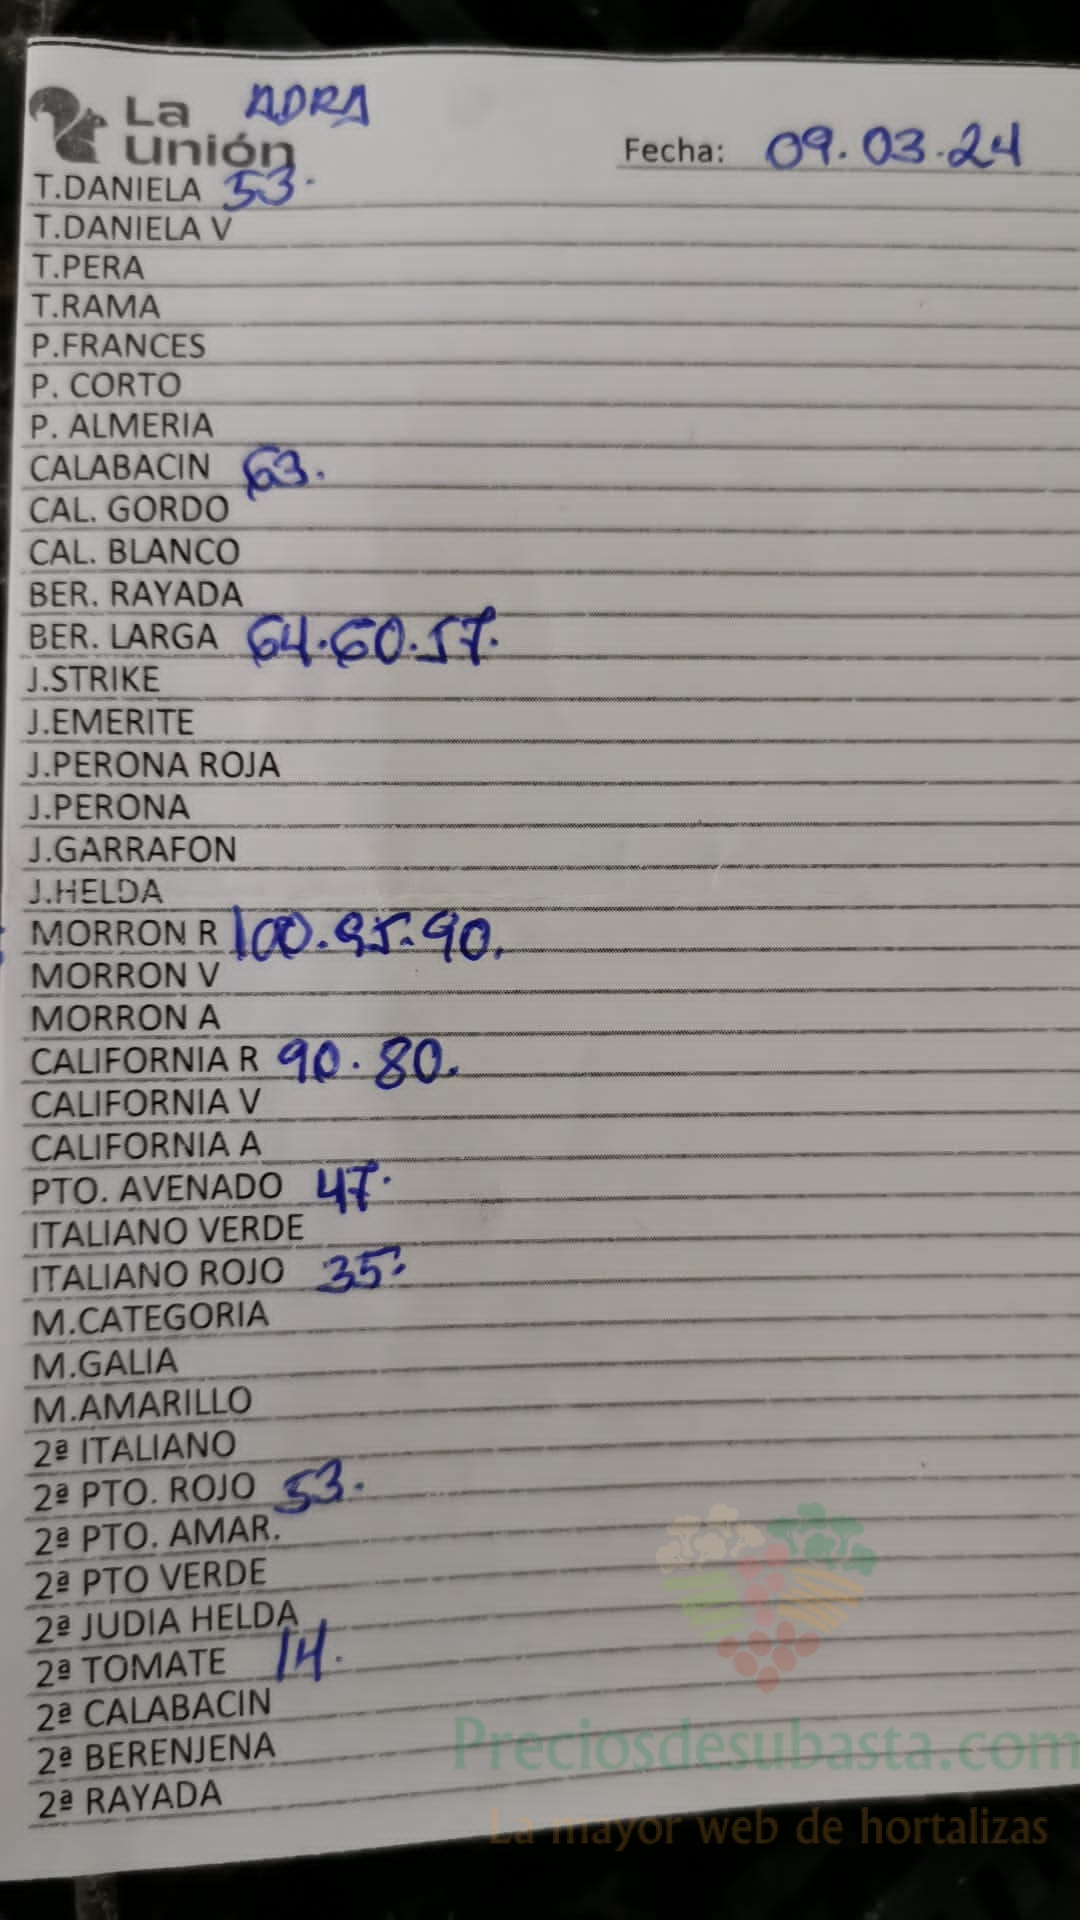 La ADRA
unión
Fecha: 09.03.24
T.DANIELA 53.
T.DANIELA V
T.PERA
T.RAMA
P.FRANCES
P. CORTO
P. ALMERIA
CALABACIN 63.
CAL. GORDO
CAL. BLANCO
BER. RAYADA
BER. LARGA 64.60.57.
J.STRIKE
J.EMERITE
J.PERONA ROJA
J.PERONA
J.GARRAFON
J.HELDA
MORRON R 100.95.90.
MORRON V
MORRON A
CALIFORNIA R 90.80.
CALIFORNIA V
CALIFORNIA A
PTO. AVENADO 47.
ITALIANO VERDE
ITALIANO ROJO 35.
M.CATEGORIA
M.GALIA
M.AMARILLO
2ª ITALIANO
2ª PTO. ROJO 53.
2ª PTO. AMAR.
2ª PTO VERDE
2ª JUDIA HELDA
2ª TOMATE 14.
2ª CALABACIN
2ª BERENJENA
2ª RAYADA
Preciosdesubasta.com
La mayor web de hortalizas